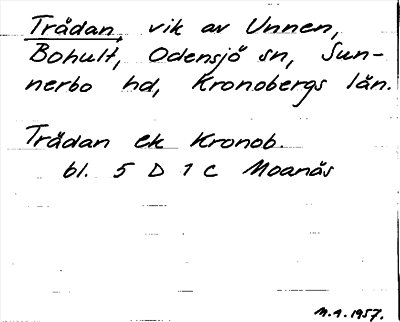 Trådan, vik av Unnen,
Bohult, Odensjö sn, Sun-
nerbo hd, Kronobergs län.
Trådan ek Kronob.
bl. 5 D 1 c Moanäs
M.A. 1957.